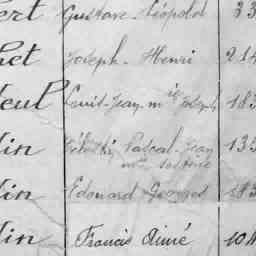 ert Gustave-Léopold 33
het Joseph-Henri 214
eul Louis-Jean-Mie Joseph 183
lin Pascal-Jean 135
lin Edouard Georges 183
lin Francis Aimé 104